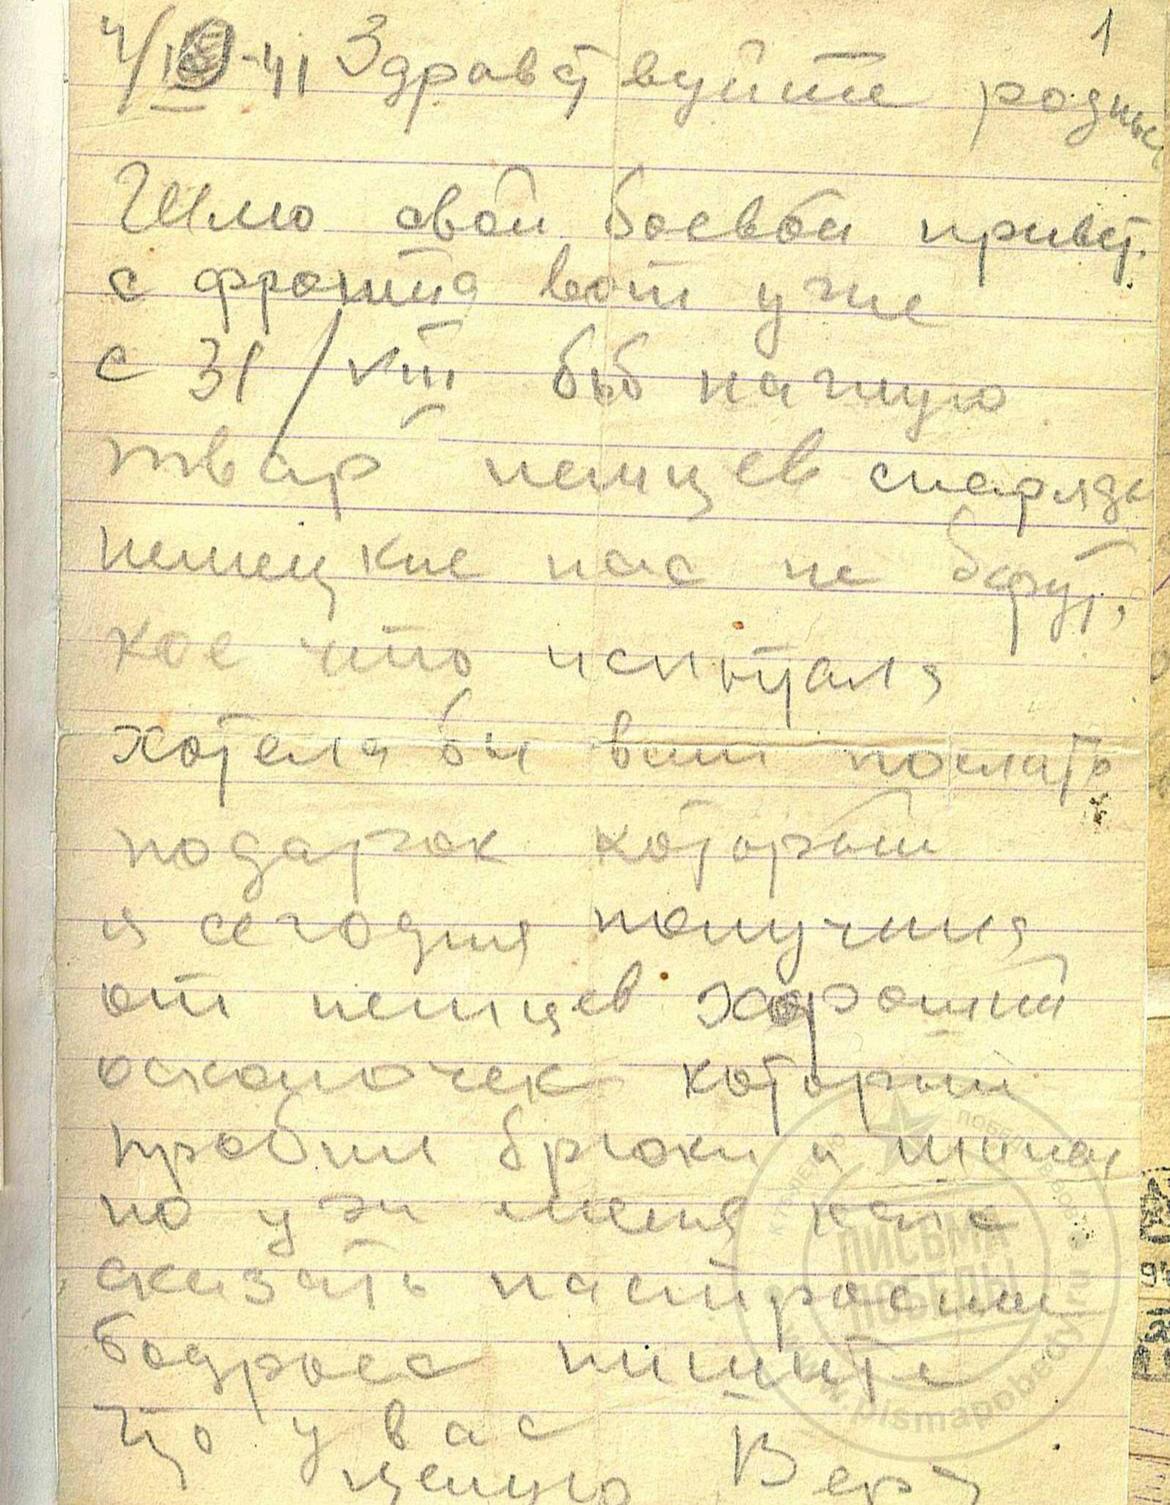 1
4/IX-41 Здравствуйте родные
Шлю свой боевой привет.
с фронта вот уже
с 31/VIII бьб начную
твар немцев снаряды
немецкие нас не берут,
кое что испытала
хотела бы вам послать
подарок который
я сегодня получила
от немцев хороший
осколочек который
пробил брюки и шинел
но у меня
сказать настроение
бодрое пишите
что у вас
целую Вера
ПИСЬМА
ПОБЕДЫ
pismapobedy.ru